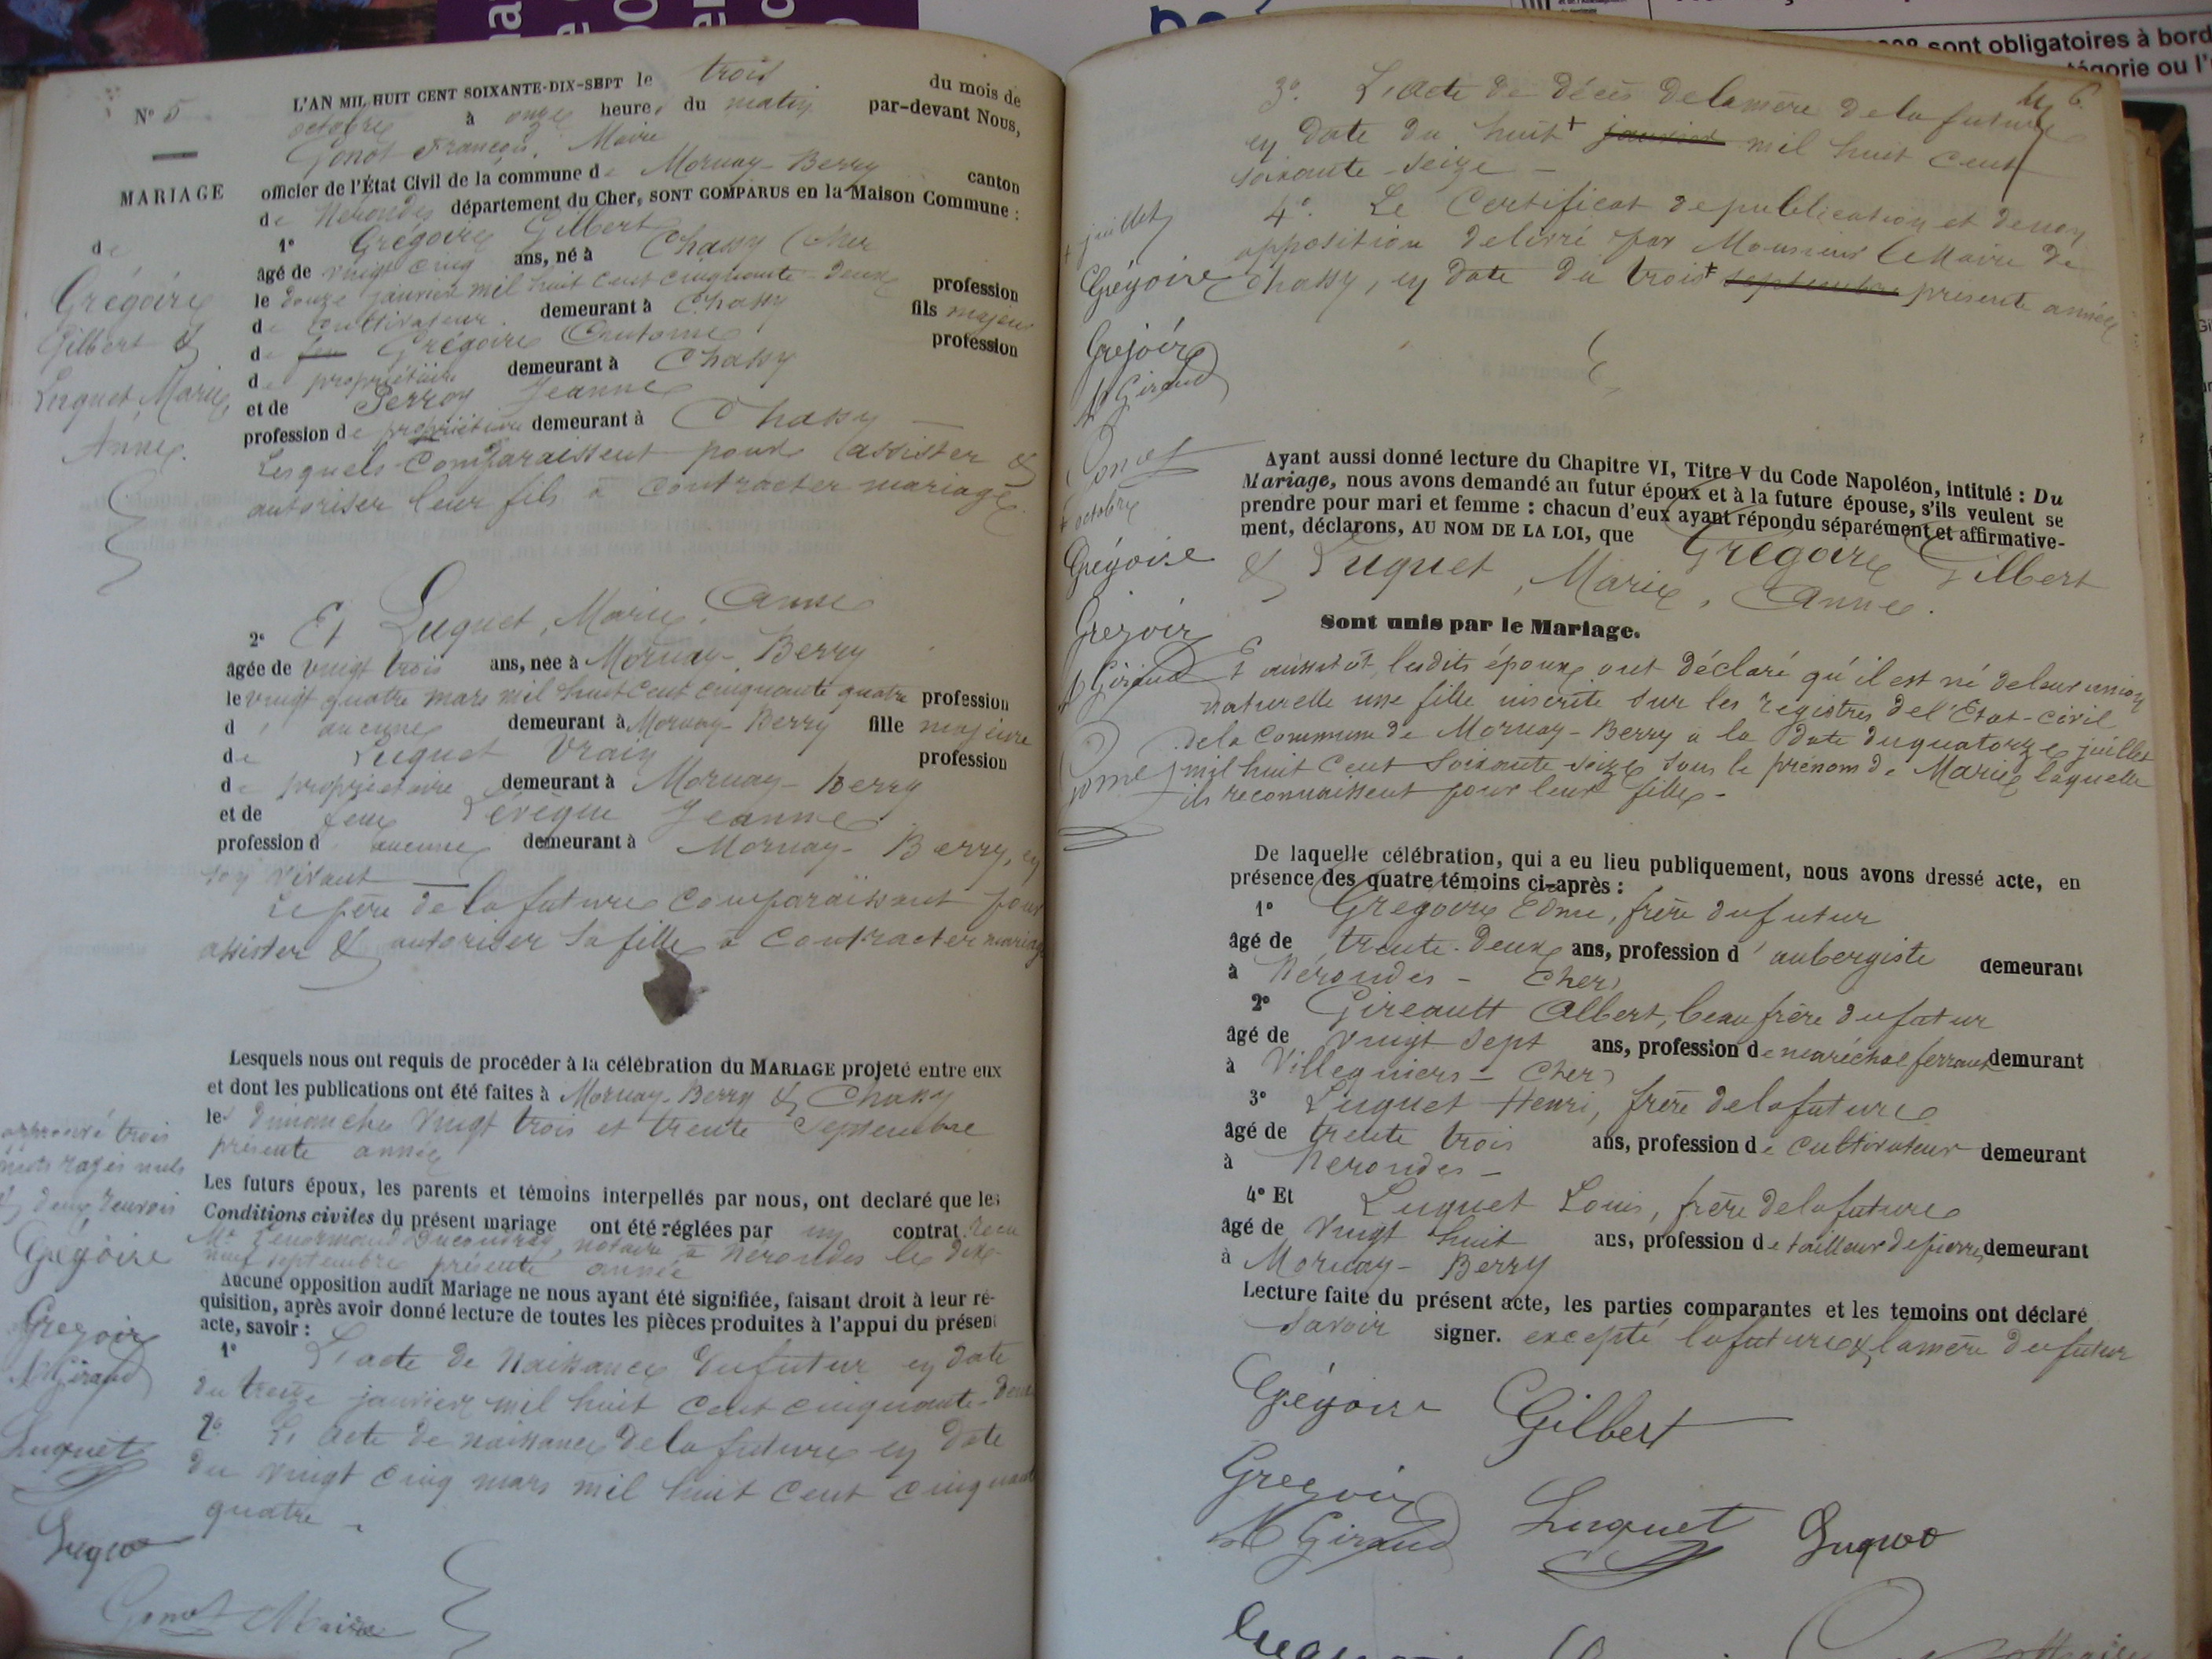 sont obligatoires à bord
N° 5
MARIAGE
de
Grégoire
Gilbert &
Luquet, Marie,
Anne.
L'AN MIL HUIT CENT SOIXANTE-DIX-SEPT le trois du mois de
octobre à onze heures du matin par-devant Nous,
Gonot François, Maire
officier de l'État Civil de la commune de Mornay-Berry canton
de Nérondes département du Cher, SONT COMPARUS en la Maison Commune :
1° Grégoire Gilbert
âgé de vingt cinq ans, né à Chassy (Cher
le douze janvier mil huit cent cinquante-deux profession
de Cultivateur demeurant à Chassy fils majeur
de feu Grégoire Antoine profession
de propriétaire demeurant à Chassy
et de Perron Jeanne
profession de propriétaire demeurant à Chassy
Lesquels comparaissent pour assister &
autoriser leur fils à contracter mariage.
2° Et Luquet, Marie, Anne
âgée de vingt trois ans, née à Mornay-Berry
le vingt quatre mars mil huit cent cinquante quatre profession
d'aucune demeurant à Mornay-Berry fille majeure
de Luquet Vrain profession
de propriétaire demeurant à Mornay-Berry
et de feue Lévèque Jeanne
profession d'aucune demeurant à Mornay-Berry, en
son vivant
Le père de la future comparaissant pour
assister & autoriser sa fille à contracter mariage
Lesquels nous ont requis de procéder à la célébration du MARIAGE projeté entre eux
et dont les publications ont été faites à Mornay-Berry & Chassy
les dimanches vingt trois et trente septembre
présente année
Les futurs époux, les parents et témoins interpellés par nous, ont declaré que les
Conditions civiles du présent mariage ont été réglées par un contrat reçu
Me notaire à Nérondes le dix-
neuf septembre présente année
Aucune opposition audit Mariage ne nous ayant été signifiée, faisant droit à leur ré-
quisition, après avoir donné lecture de toutes les pièces produites à l'appui du présent
acte, savoir :
1° L'acte de Naissance du futur en date
du treize janvier mil huit cent cinquante-deux
2° L'acte de naissance de la future en date
du vingt cinq mars mil huit cent cinquante
quatre
approuvé trois
mots rayés nuls
& deux renvois
Grégoire
Gregoir
Giraud
Luquet
Gonot Maire
3° L'acte de décès de la mère de la future
en date du huit + janvier mil huit cent
soixante-seize
4° Le Certificat de publication et de non
opposition délivré par Monsieur le Maire de
Chassy, en date du trois + septembre présente année
+ juillet
Grégoire
Grejoir
Giraud
Gonot
+ octobre
Grégoire
Gregoir
Giraud
Gonot
Ayant aussi donné lecture du Chapitre VI, Titre V du Code Napoléon, intitulé : Du
Mariage, nous avons demandé au futur époux et à la future épouse, s'ils veulent se
prendre pour mari et femme : chacun d'eux ayant répondu séparément et affirmative-
ment, déclarons, AU NOM DE LA LOI, que Grégoire Gilbert
& Luquet, Marie, Anne.
Sont unis par le Mariage.
Et aussitôt, lesdits époux ont déclaré qu'il est né de leur union
naturelle une fille inscrite sur les registres de l'État-civil
de la commune de Mornay-Berry à la date du quatorze juillet
mil huit cent soixante seize sous le prénom de Marie laquelle
ils reconnaissent pour leur fille-
De laquelle célébration, qui a eu lieu publiquement, nous avons dressé acte, en
présence des quatre témoins ci-après :
1° Gregoire Edme, frère du futur
âgé de trente-deux ans, profession d'aubergiste demeurant
à Nérondes - Cher
2° Gireault Albert, beau frère du futur
âgé de vingt sept ans, profession de maréchal ferrant demurant
à Villequiers - Cher
3° Luquet Henri, frère de la future
âgé de trente trois ans, profession de cultivateur demeurant
à Nerondes-
4° Et Luquet Louis, frère de la future
âgé de vingt huit ans, profession de tailleur de pierres demeurant
à Mornay-Berry
Lecture faite du présent acte, les parties comparantes et les temoins ont déclaré
savoir signer. excepté la future & la mère du futur
Grégoire Gilbert
Gregoir
Giraud Luquet